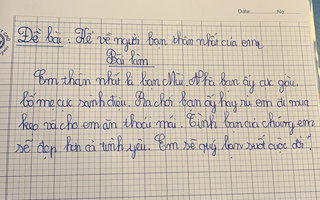 Date: No:
Đề bài: Kể về người bạn thân nhất của em
Bài làm
Em thân nhất là bạn Mũi. Nhà bạn ấy cực giàu,
bố mẹ cực sành điệu. Ba chở bạn ấy hay rủ em đi mua
kẹo và cho em ăn thoải mái. Tình bạn của chúng em
sẽ đẹp hơn cả tình yêu. Em sẽ quý bạn suốt cuộc đời!